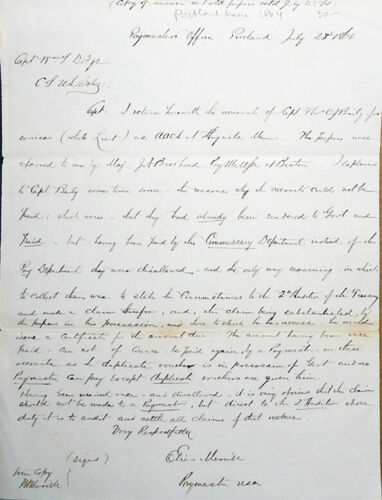 (Copy of answer sent with papers retd July 25th 64
Portland Maine 1864 30-
Paymasters Office Portland July 23d 1864
Capt Wm T Dodge
C S U S Vols
Capt. I return herewith the accounts of Capt Thos C J Baily for
services (while Lieut) as AACS at Augusta Me. The papers were
referred to me by Maj J A Brodhead Pay Mr USA at Boston I explained
to Capt Baily some time since the reasons why the accounts could not be
paid: which were - that they had already been rendered to Govt. and
Paid - but having been paid by the Commissary Department instead of the
Pay Department they were disallowed, and the only way remaining, in which
to collect them was to state the Circumstances to the 2d Auditor of the Treasy
and make a claim therefor, and, the claim being substantiated by
the papers in his possession, and those to which he has access he would
issue a Certificate for the amount due. The amount having been once
paid - can not of course be paid again, by a Paymaster on these
accounts as the duplicate voucher is in possession of Govt and no
Paymaster can pay except duplicate vouchers are given him.
Having been received once - and disallowed it is very obvious that the claim
should not be made to a Paymaster, but direct to the 2d Auditor whose
duty it is to audit and settle all claims of that nature.
Very Respectfully
(signed) Elias Merrill
Paymaster USA
True Copy